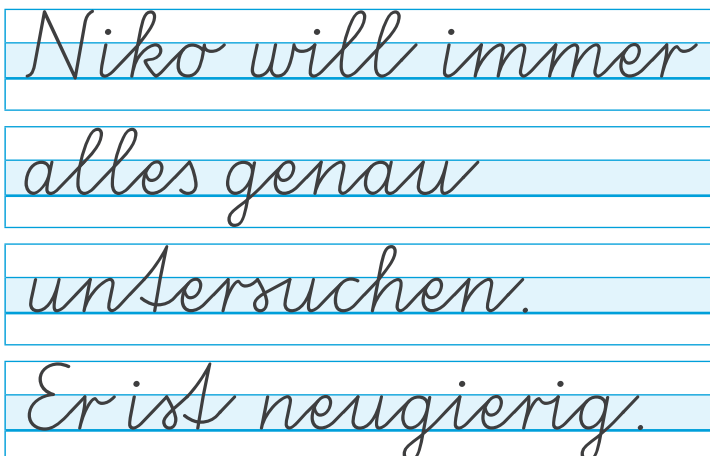 Niko will immer
alles genau
untersuchen.
Er ist neugierig.